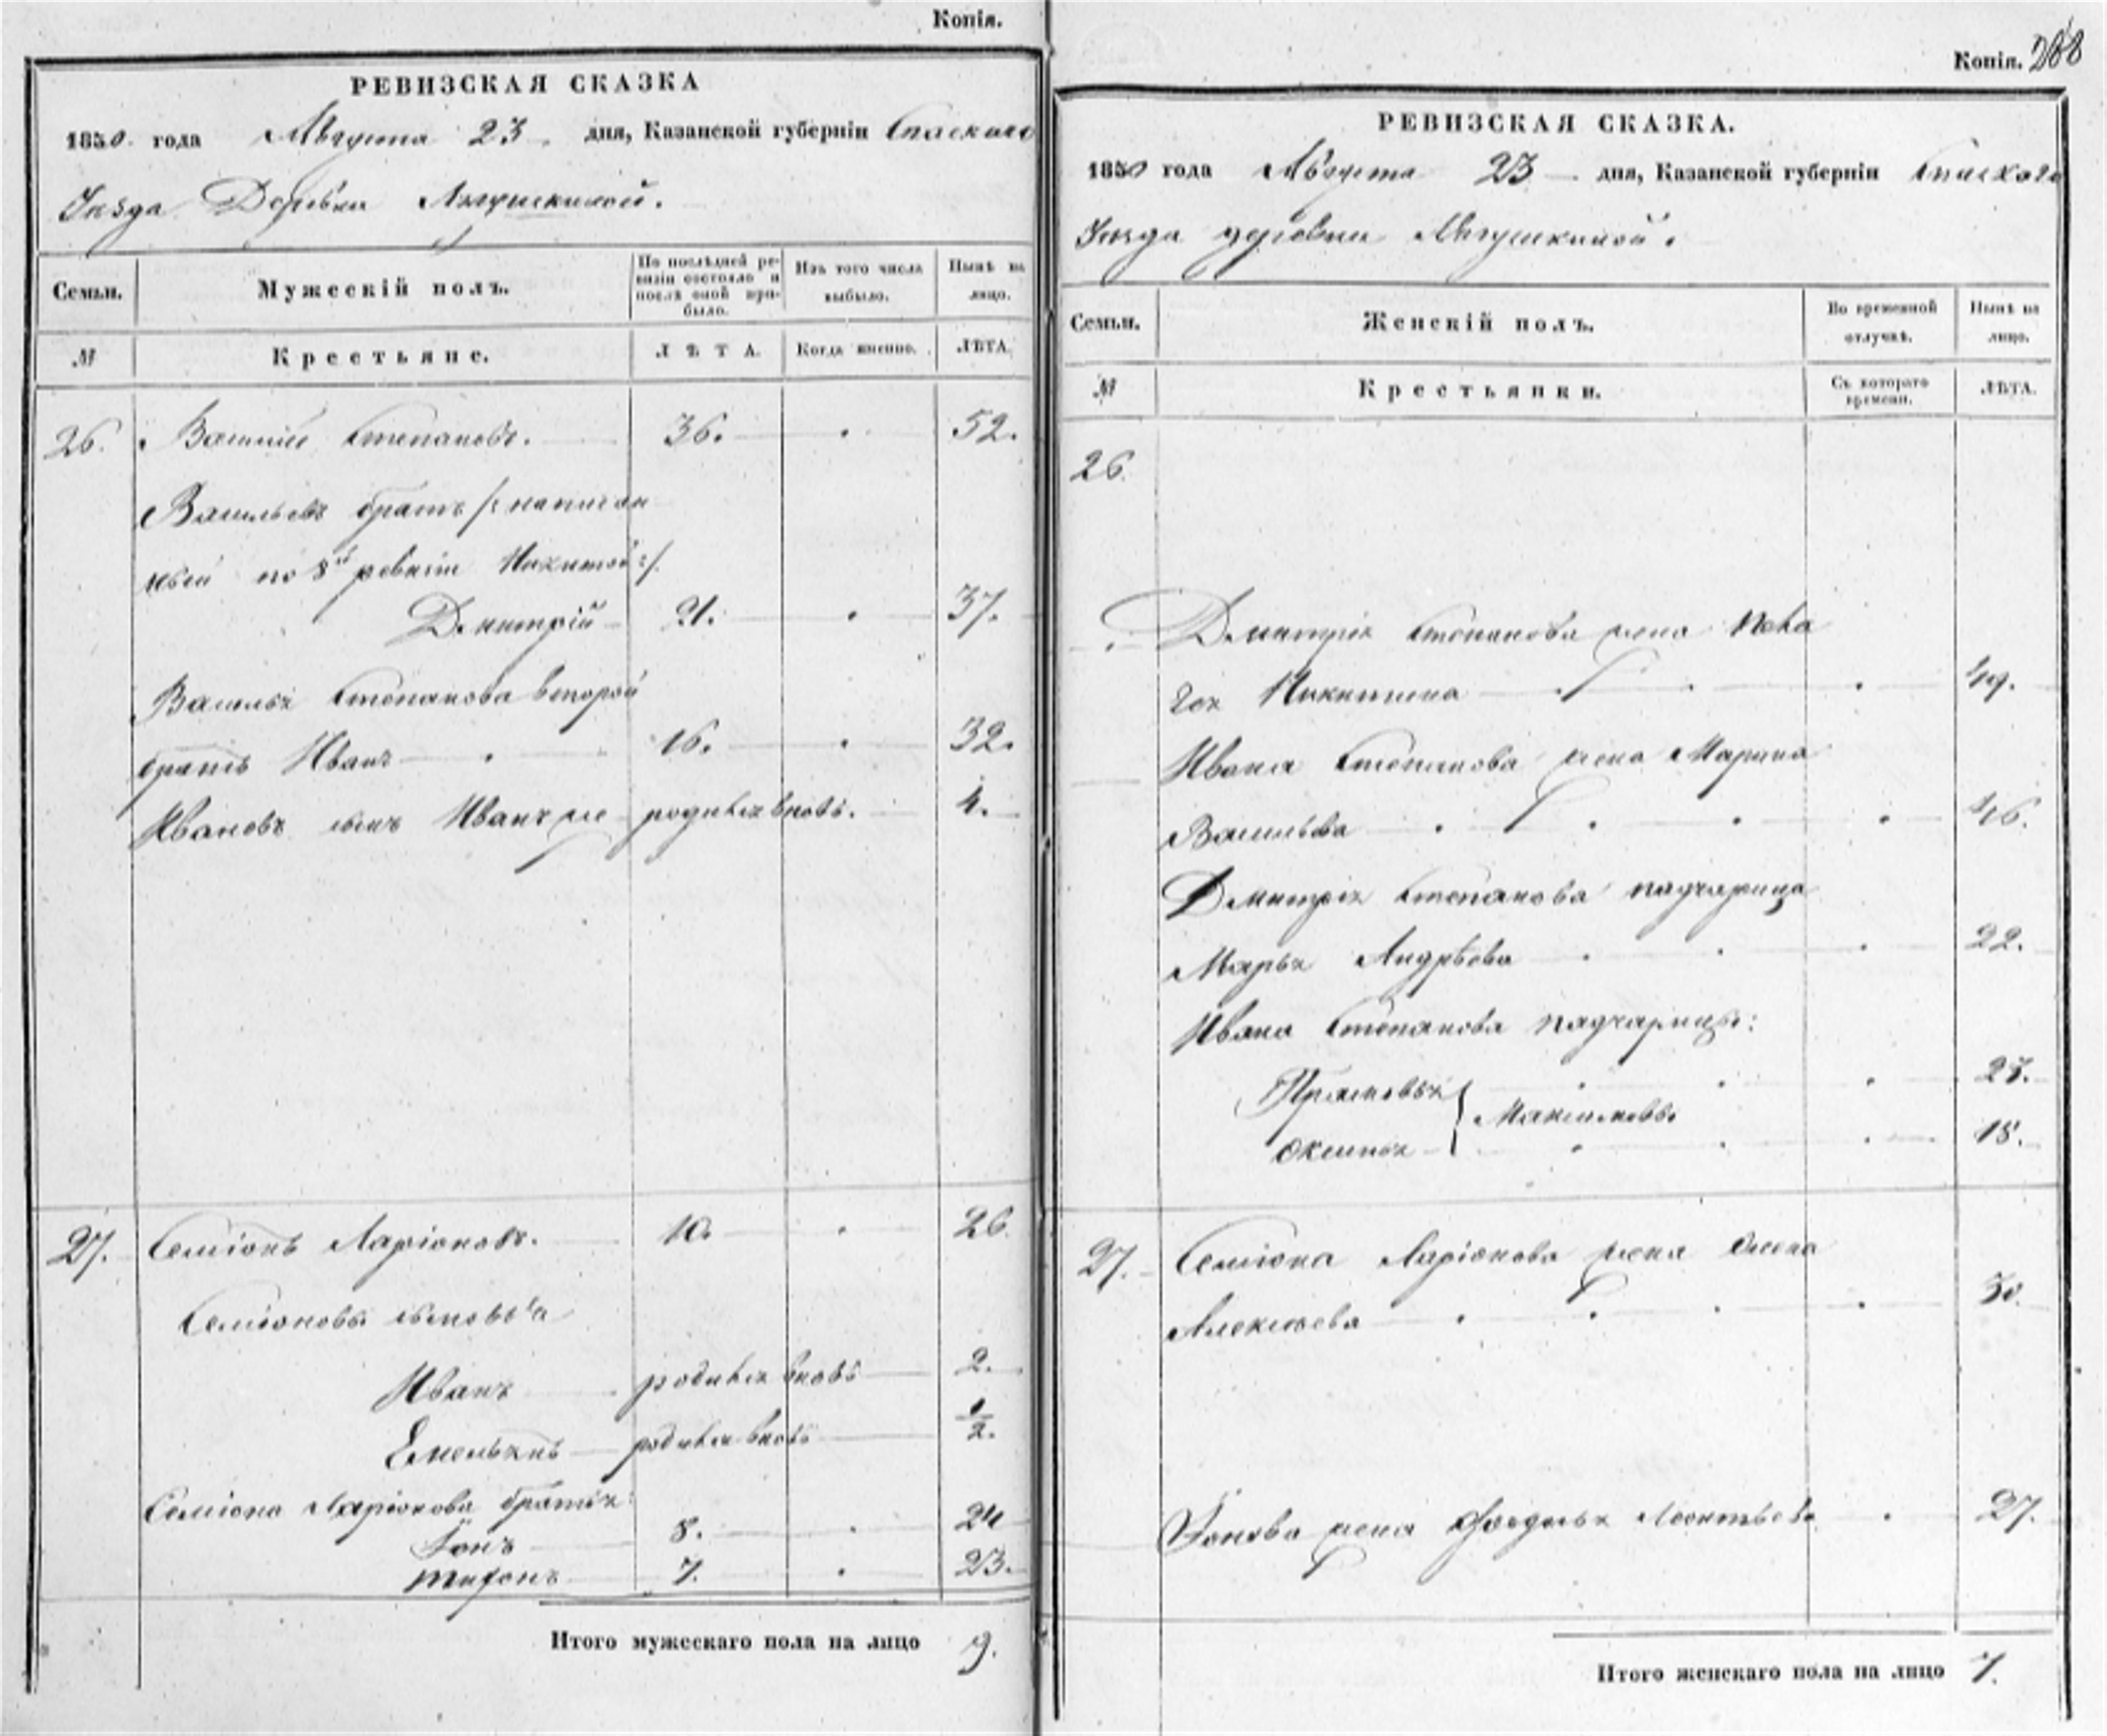 Копія.
РЕВИЗСКАЯ СКАЗКА
1850 года Августа 23 дня, Казанской губерніи Спаскаго
Уѣзда Деревни
Семьи.
Мужескій полъ.
По послѣдней ре-
визіи состояло и
послѣ оной при-
было.
Изъ того числа
выбыло.
Нынѣ на
лицо.
№
Крестьяне.
ЛѢТА.
Когда именно.
ЛѢТА.
26. Василій Степановъ. 36. 52.
Васильевъ братъ /: написан
ный по 8й ревизіи Никитой :/
Дмитрій 21. 37.
Василья Степанова второй
братъ Иванъ 16. 32.
Ивановъ сынъ Иванъ же родился вновь. 4.
27. Семіонъ Ларіоновъ. 10. 26
Семіоновы сыновья
Иванъ родился вновь 2.
Емельянъ родился вновь 1/2.
Семіона Ларіонова братья:
Іонъ 8. 24
Тифонъ 7. 23.
Итого мужескаго пола на лицо 9.
Копія. 288
РЕВИЗСКАЯ СКАЗКА.
1850 года Августа 23 дня, Казанской губерніи Спаскаго
Уѣзда деревни
Семьи.
Женскій полъ.
Во временной
отлучкѣ.
Нынѣ на
лицо.
№
Крестьянки.
Съ котораго
времени.
ЛѢТА.
26.
Дмитрія Степанова жена Пела
гея Никитина 49.
Ивана Степанова жена Марина
Васильева 46.
Дмитрія Степанова падчарица
Марья Андрѣева 22.
Ивана Степанова падчарицы:
Прасковья
Максимовы
Оксинья 18.
27. Семіона Ларіонова жена Олена
Алексѣева 30.
Іонова жена Федосья Леонтьева 27.
Итого женскаго пола на лицо 7.